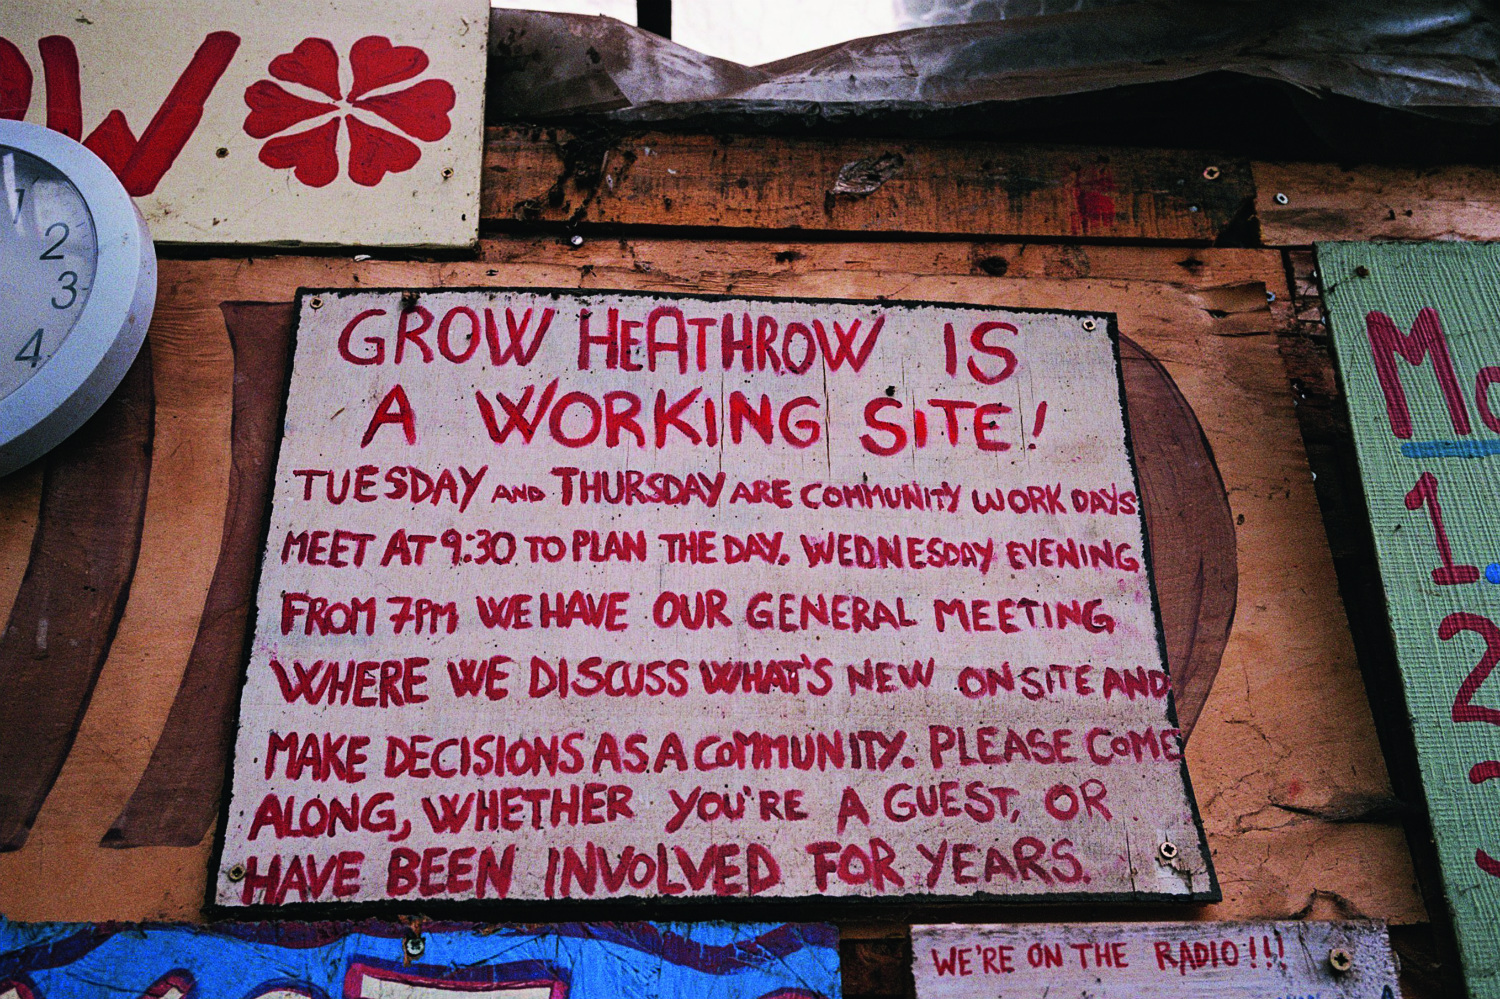 OW
1
2
3
4
GROW HEATHROW IS
A WORKING SITE!
TUESDAY AND THURSDAY ARE COMMUNITY WORK DAYS
MEET AT 9:30 TO PLAN THE DAY. WEDNESDAY EVENING
FROM 7PM WE HAVE OUR GENERAL MEETING
WHERE WE DISCUSS WHAT'S NEW ON SITE AND
MAKE DECISIONS AS A COMMUNITY. PLEASE COME
ALONG, WHETHER YOU'RE A GUEST, OR
HAVE BEEN INVOLVED FOR YEARS.
1.
2
3
WE'RE ON THE RADIO!!!